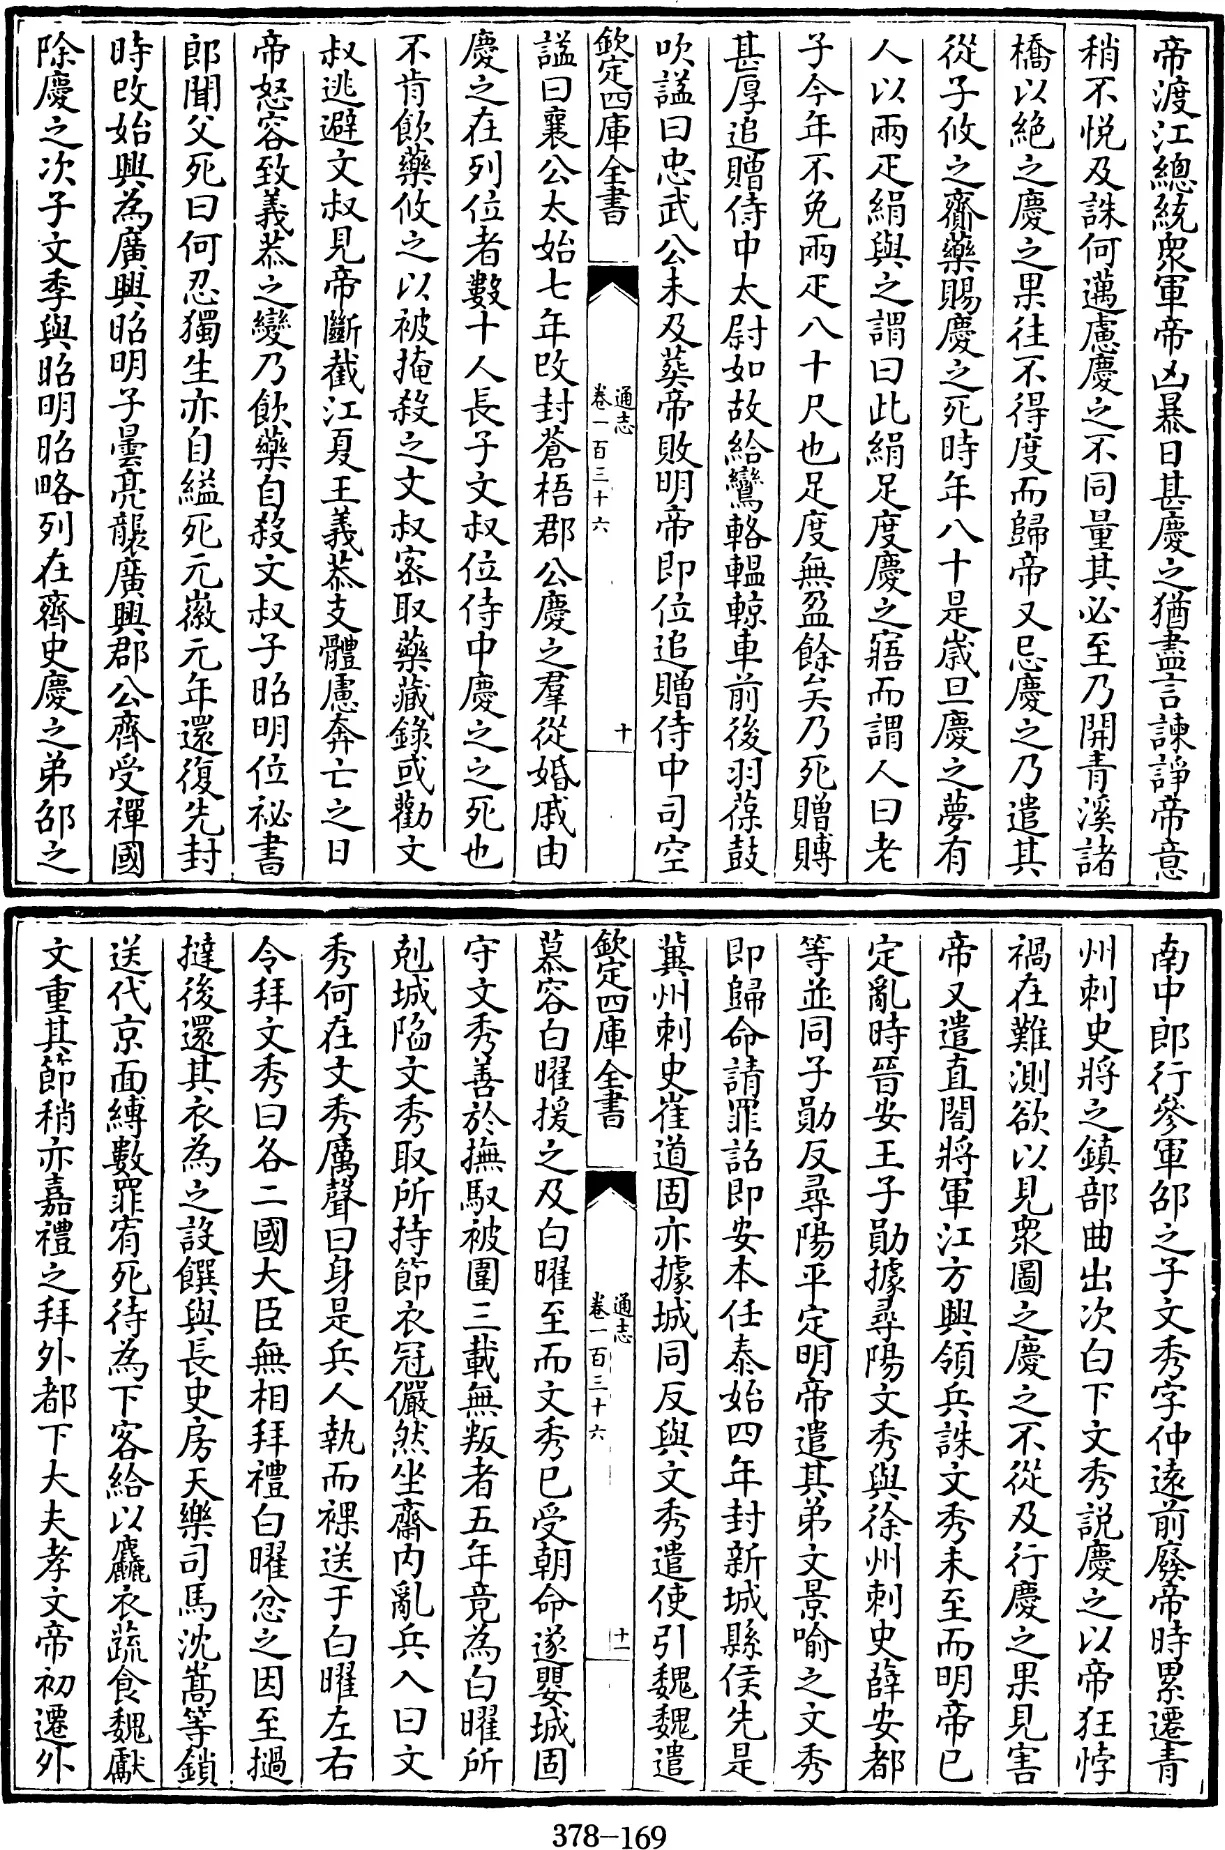 帝渡江總統衆軍帝凶暴日甚慶之猶盡言諫諍帝意
稍不悦及誅何邁慮慶之不同量其必至乃開青溪諸
橋以絶之慶之果往不得度而歸帝又忌慶之乃遣其
從子攸之齎藥賜慶之死時年八十是歲旦慶之夢有
人以兩疋絹與之謂曰此絹足度慶之寤而謂人曰老
子今年不免兩疋八十尺也足度無盈餘矣乃死贈賻
甚厚追贈侍中太尉如故給鸞輅轀輬車前後羽葆鼓
吹諡曰忠武公未及葬帝敗明帝即位追贈侍中司空
欽定四庫全書
通志
卷一百三十六
十
諡曰襄公太始七年改封蒼梧郡公慶之羣從婚戚由
慶之在列位者數十人長子文叔位侍中慶之之死也
不肯飲藥攸之以被掩殺之文叔密取藥藏錄或勸文
叔逃避文叔見帝斷截江夏王義恭支體慮奔亡之日
帝怒容致義恭之變乃飲藥自殺文叔子昭明位祕書
郎聞父死曰何忍獨生亦自縊死元徽元年還復先封
時改始興為廣興昭明子曇亮襲廣興郡公齊受禪國
除慶之次子文季與昭明昭略列在齊史慶之弟邵之
南中郎行參軍邵之子文秀字仲遠前廢帝時累遷青
州刺史將之鎮部曲出次白下文秀説慶之以帝狂悖
禍在難測欲以見衆圖之慶之不從及行慶之果見害
帝又遣直閤將軍江方興領兵誅文秀未至而明帝已
定亂時晉安王子勛據尋陽文秀與徐州刺史薛安都
等並同子勛反尋陽平定明帝遣其弟文景喻之文秀
即歸命請罪詔即安本任泰始四年封新城縣侯先是
冀州刺史崔道固亦據城同反與文秀遣使引魏魏遣
欽定四庫全書
通志
卷一百三十六
十一
慕容白曜援之及白曜至而文秀已受朝命遂嬰城固
守文秀善於撫馭被圍三載無叛者五年竟為白曜所
剋城陷文秀取所持節衣冠儼然坐齋内亂兵入曰文
秀何在文秀厲聲曰身是兵人執而裸送于白曜左右
令拜文秀曰各二國大臣無相拜禮白曜忿之因至撾
撻後還其衣為之設饌與長史房天樂司馬沈嵩等鎖
送代京面縛數罪宥死待為下客給以麤衣蔬食魏獻
文重其節稍亦嘉禮之拜外都下大夫孝文帝初遷外
378-169